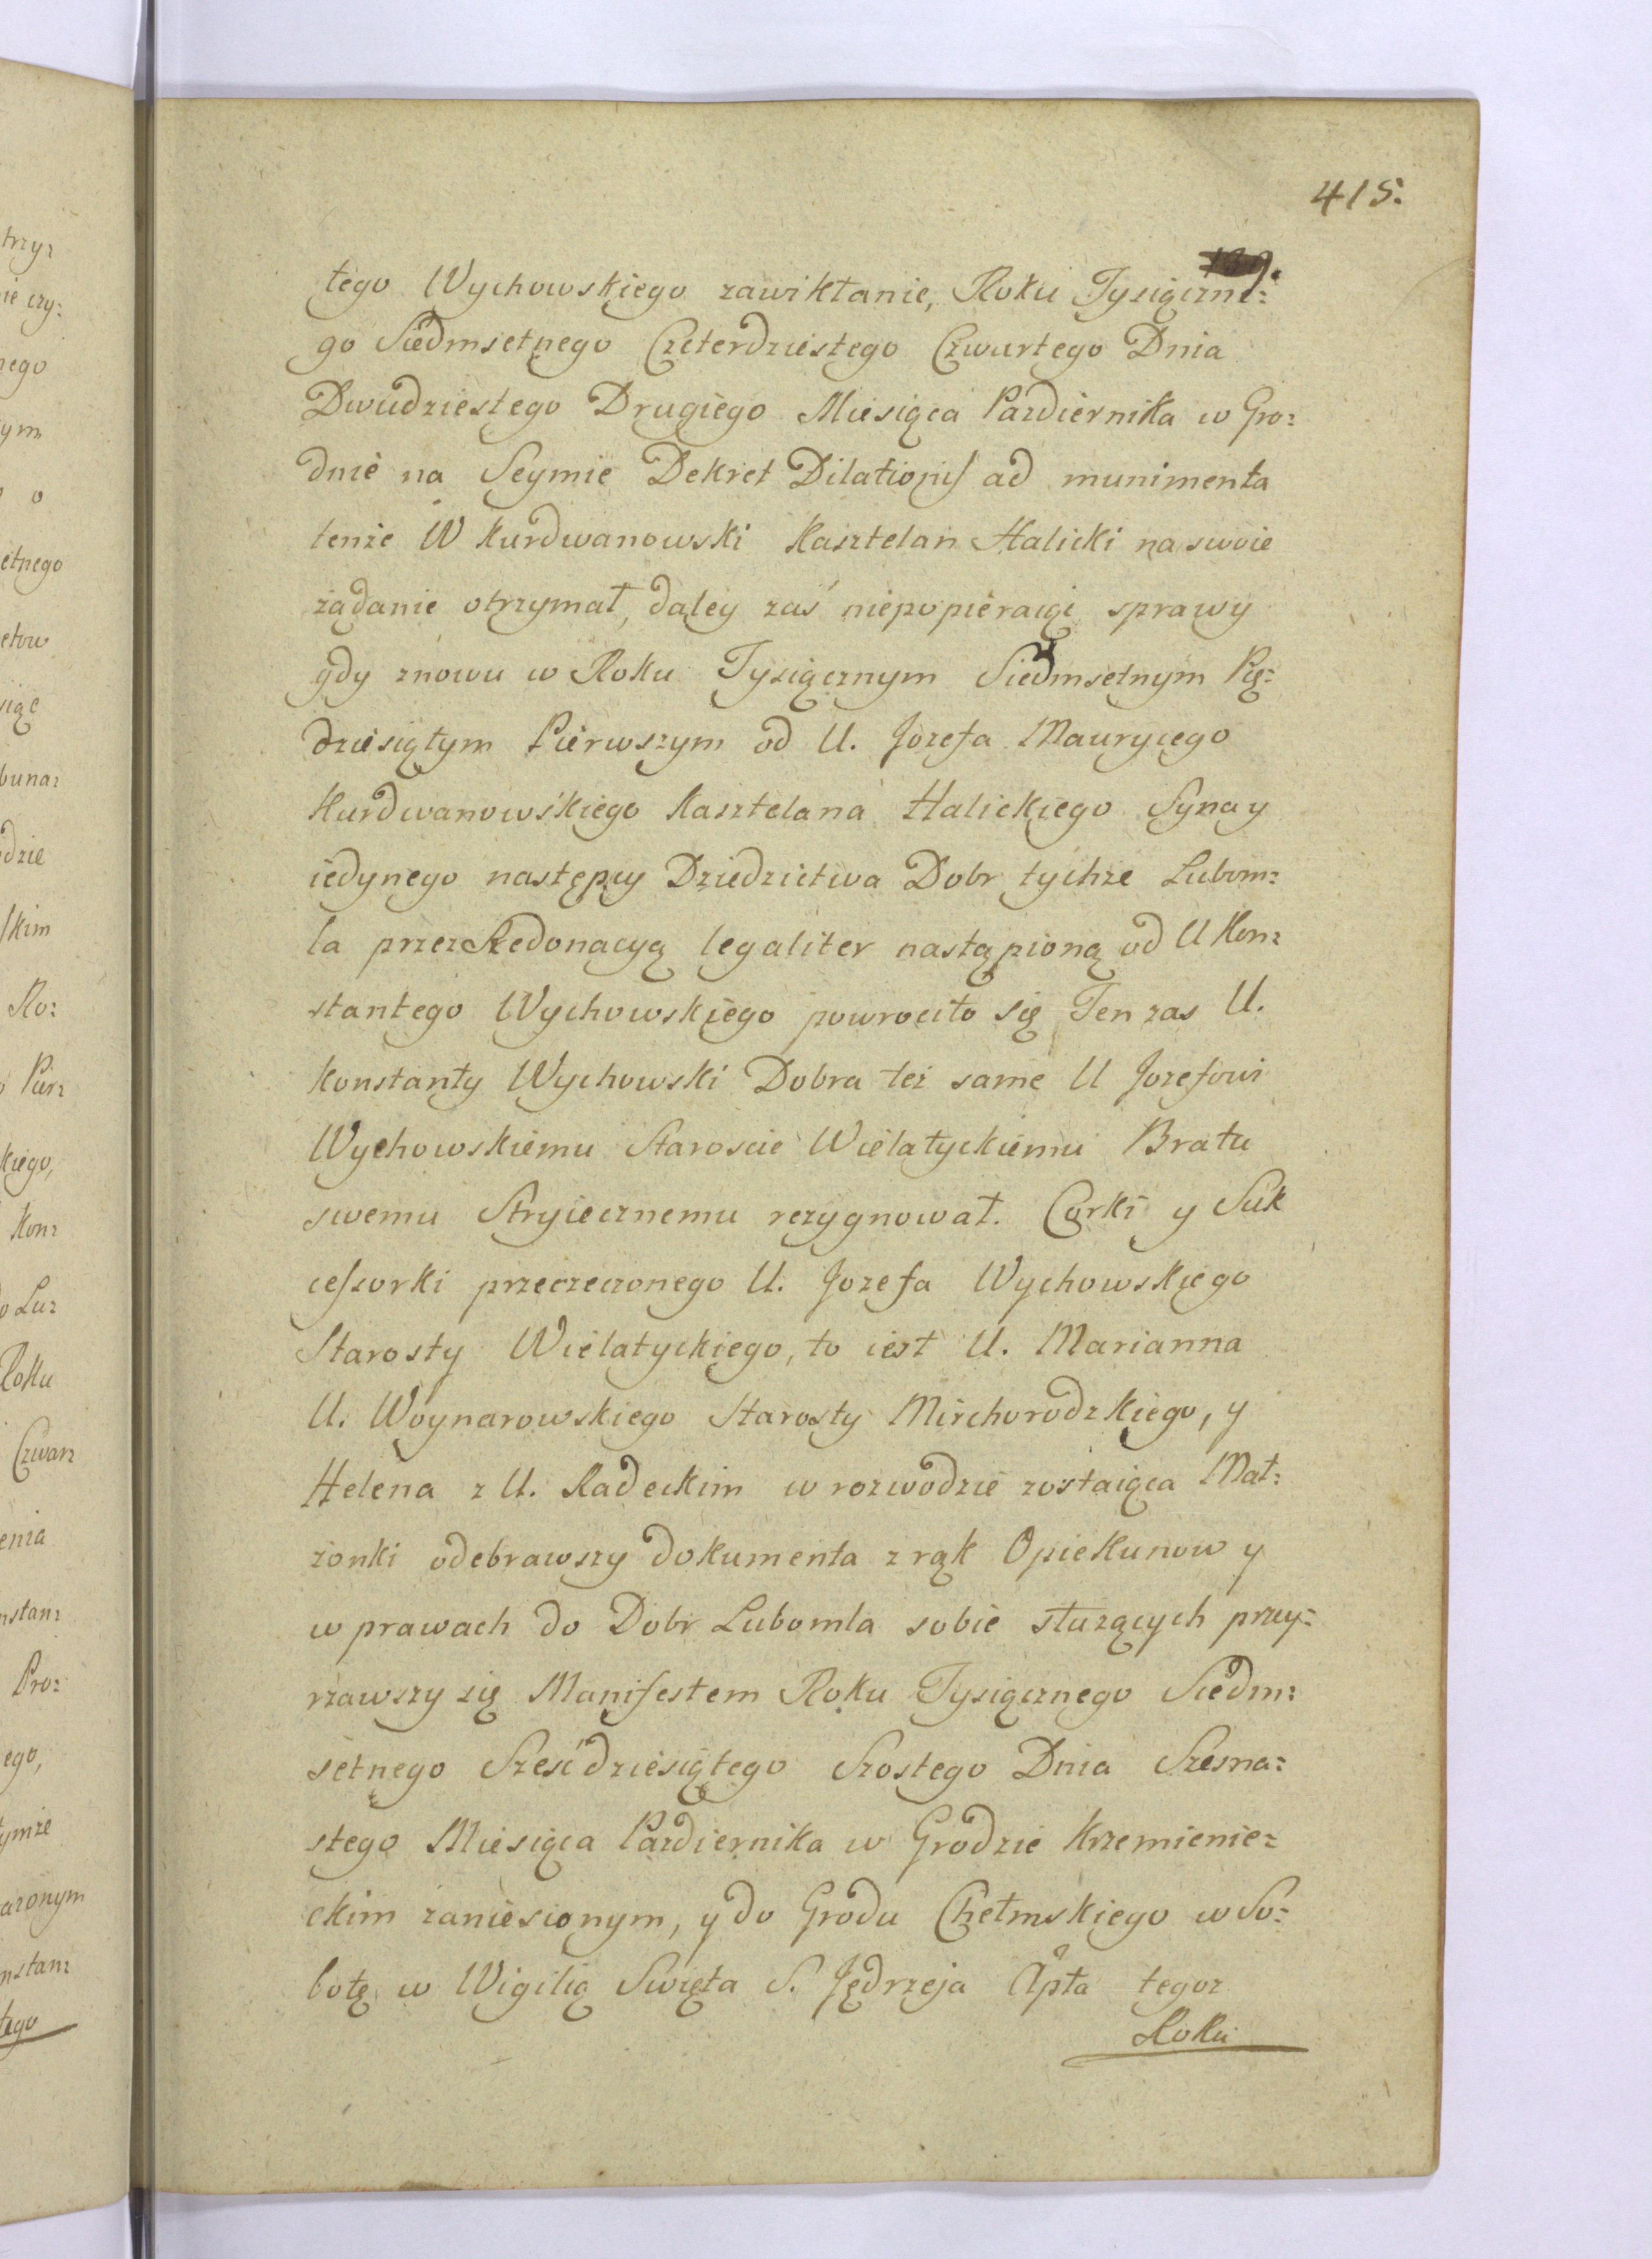 415.
tego Wychowskiego zawikłanie, Roku Tysiączne=
go Siedmsetnego Czterdziestego Czwartego Dnia
Dwudziestego Drugiego Miesiąca Pazdiernika w Gro=
dnie na Seymie Dekret Dilationis ad munimenta
tenże W Kurdwanowski Kasztelan Halicki na swoie
żądanie otrzymał, daley zaś niepopieraiąc sprawy
gdy znowu w Roku Tysiącznym Siedmsetnym Pię=
dziesiątym Pierwszym od U. Jozefa Maurycego
Kurdwanowskiego Kasztelana Halickiego Syna y
iedynego następcy Dziedzictwa Dobr tychże Lubom=
la przez Redonacyą legaliter nastąpioną od U Kon=
stantego Wychowskiego powrociło się Ten zas U.
Konstanty Wychowski Dobra też same U Jozefowi
Wychowskiemu Staroscie Wielatyckiemu Bratu
swemu Stryiecznemu rezygnował. Corki y Suk
cessorki przerzeczonego U. Jozefa Wychowskiego
Starosty Wielatyckiego, to iest U. Marianna
U. Woynarowskiego Starosty Mirchorodzkiego, y
Helena z U. Radeckim w rozwodzie zostaiąca Mał=
żonki odebrawszy dokumenta z rąk Opiekunow y
w prawach do Dobr Lubomla sobie służących przy=
rzawszy się Manifestem Roku Tysiącznego Siedm=
setnego Sześćdziesiątego Szostego Dnia Szesna=
stego Miesiąca Pazdiernika w Grodzie Krzemienie=
ckim zaniesionym, y do Grodu Chełmskiego w So=
botę w Wigilią Swięta S. Jędrzeja Apła tegoz
Roku